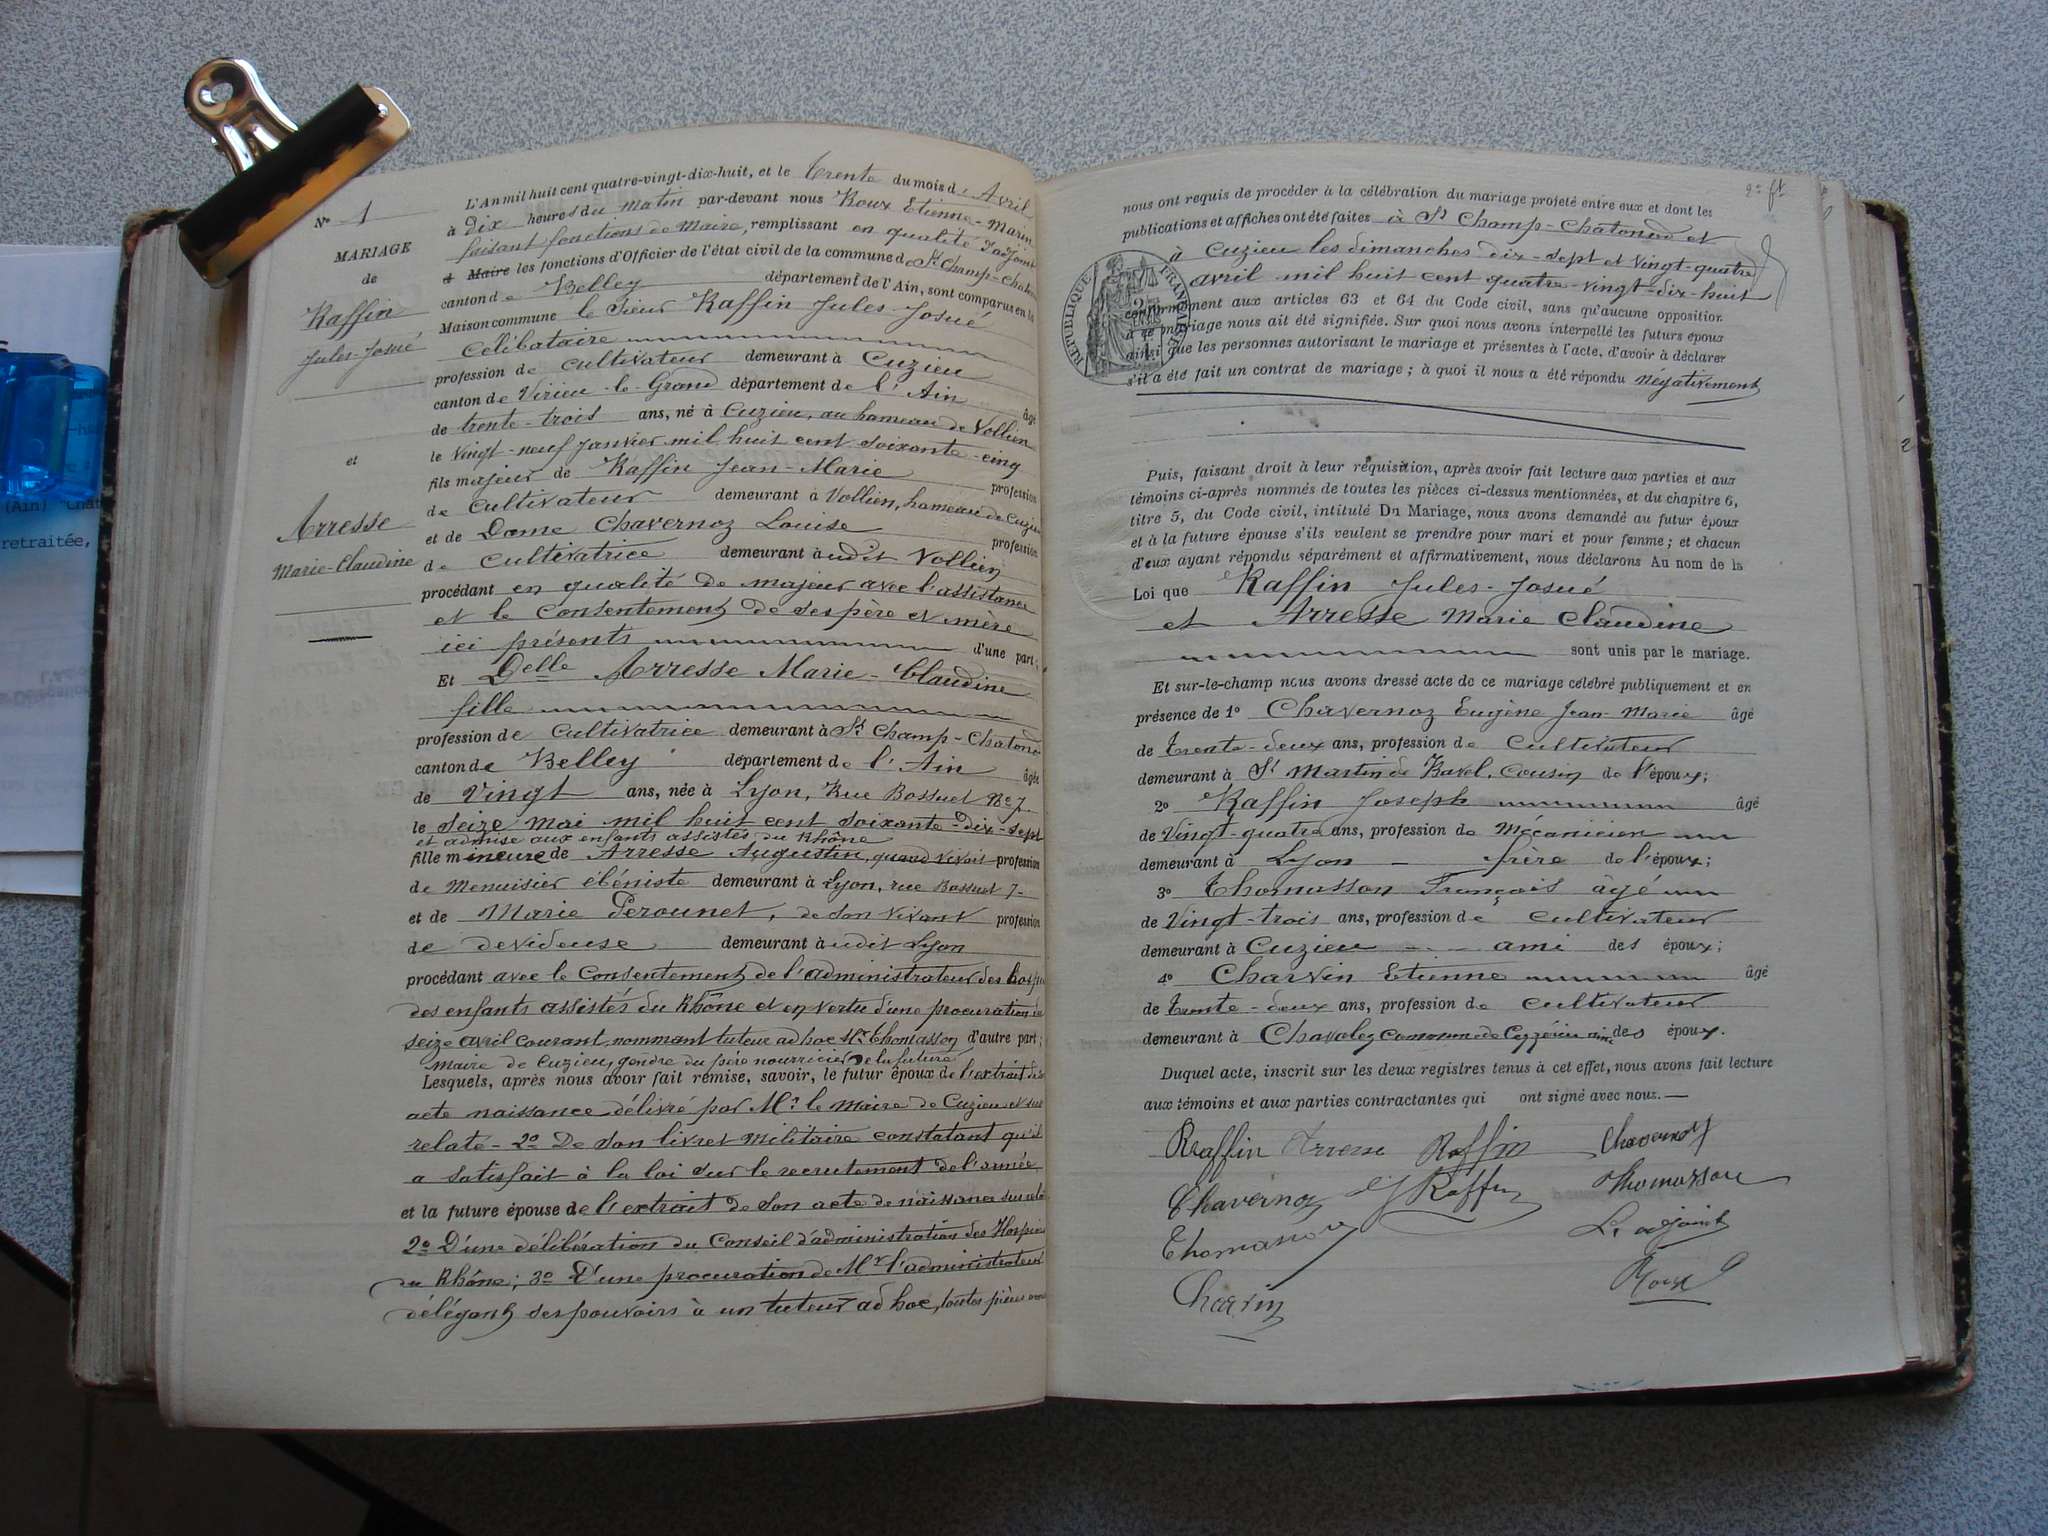 N° 1
MARIAGE
de
Raffin
Jules-Josué
et
Arresse
Marie-Claudine
L'An mil huit cent quatre-vingt-dix-huit, et le Trente du mois d'Avril
à Dix heures du matin par-devant nous Roux Etienne-Marin
faisant fonctions de Maire, remplissant en qualité d'adjoint
d Maire les fonctions d'Officier de l'état civil de la commune de St Champ-Chaton
canton de Belley département de l'Ain, sont comparus en la
Maison commune le Sieur Raffin Jules-Josué
célibataire
profession de cultivateur demeurant à Cuzieu
canton de Virieu-le-Grand département de l'Ain âgé
de trente-trois ans, né à Cuzieu, au hameau de Vollien
le vingt-neuf janvier mil huit cent soixante-cinq
fils majeur de Raffin Jean-Marie profession
de cultivateur demeurant à Vollien, hameau de Cuzieu
et de Dame Chavernoz Louise profession
de cultivatrice demeurant à udit Vollien
procédant en qualité de majeur avec l'assistance
et le consentement de ses père et mère
ici présents d'une part;
Et Delle Arresse Marie-Claudine
fille
profession de cultivatrice demeurant à St Champ-Chatono
canton de Belley département de l'Ain âgée
de vingt ans, née à Lyon, Rue Bossuet No 7
le seize mai mil huit cent soixante-dix-sept
et admise aux enfants assistés du Rhône
fille mineure de Arresse Augustin, quand vivait profession
de menuisier ébéniste demeurant à Lyon, rue Bossuet 7-
et de Marie Perounet, de son vivant profession
de devideuse demeurant à udit Lyon
procédant avec le consentement de l'administrateur des hospi
des enfants assistés du Rhône et en vertu d'une procuration du
seize avril courant, nommant tuteur ad hoc Mr Thomasson d'autre part;
maire de Cuzieu, gendre du père nourricier de la future
Lesquels, après nous avoir fait remise, savoir, le futur époux de l'extrait de son
acte naissance délivré par Mr le maire de Cuzieu et sus
relaté - 2° De son livret militaire constatant qu'il
a satisfait à la loi sur le recrutement de l'armée
et la future épouse de l'extrait de son acte de naissance sus relaté
2° D'une délibération du Conseil d'administration des Hospices
du Rhône; 3° D'une procuration de Mr l'administrateur
délégant ses pouvoirs à un tuteur ad hoc, toutes pièces
2e ft
nous ont requis de procéder à la célébration du mariage projeté entre eux et dont les
publications et affiches ont été faites à St Champ-Chatonod et
à Cuzieu les dimanches dix-sept et vingt-quatre
avril mil huit cent quatre-vingt-dix-huit
conformément aux articles 63 et 64 du Code civil, sans qu'aucune opposition
à ce mariage nous ait été signifiée. Sur quoi nous avons interpellé les futurs époux
ainsi que les personnes autorisant le mariage et présentes à l'acte, d'avoir à déclarer
s'il a été fait un contrat de mariage; à quoi il nous a été répondu négativement
RÉPUBLIQUE FRANÇAISE
Puis, faisant droit à leur réquisition, après avoir fait lecture aux parties et aux
témoins ci-après nommés de toutes les pièces ci-dessus mentionnées, et du chapitre 6,
titre 5, du Code civil, intitulé Du Mariage, nous avons demandé au futur époux
et à la future épouse s'ils veulent se prendre pour mari et pour femme; et chacun
d'eux ayant répondu séparément et affirmativement, nous déclarons Au nom de la
Loi que Raffin Jules-Josué
et Arresse Marie Claudine
sont unis par le mariage.
Et sur-le-champ nous avons dressé acte de ce mariage célébré publiquement et en
présence de 1° Chavernoz Eugène Jean-Marie âgé
de trente-deux ans, profession de cultivateur
demeurant à St Martin de Bavel, cousin de l'époux;
2° Raffin Joseph âgé
de vingt-quatre ans, profession de mécanicien
demeurant à Lyon - frère de l'époux;
3° Thomasson François âgé
de vingt-trois ans, profession de cultivateur
demeurant à Cuzieu - ami des époux;
4° Charvin Etienne âgé
de trente-deux ans, profession de cultivateur
demeurant à Chavoley commune de Ceyzérieu ami des époux.
Duquel acte, inscrit sur les deux registres tenus à cet effet, nous avons fait lecture
aux témoins et aux parties contractantes qui ont signé avec nous.—
Raffin Arresse Raffin Chavernoz
Chavernoz J Raffin Thomasson
Thomasson L'adjoint
Charvin Roux
(Ain)
retraitée,